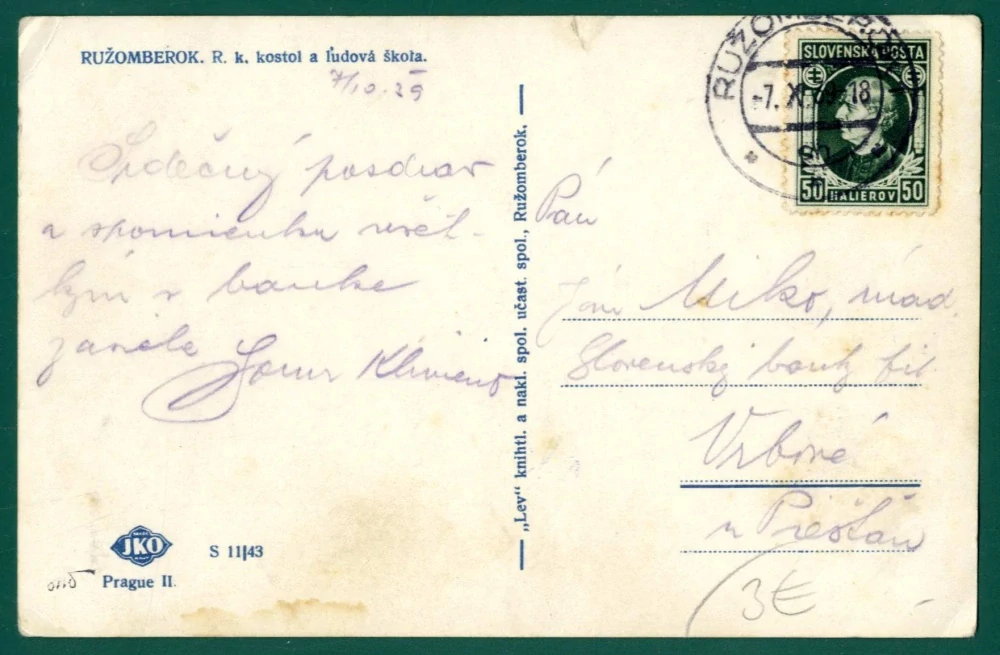 RUŽOMBEROK. R. k. kostol a ľudová škola.
7/10.39
Srdečný pozdrav
a spomienku všet-
kým v banke
zasiela
„Lev“ knihtl. a nakl. spol. učast. spol., Ružomberok.
RUŽOMBEROK
-7. X. 39-18
SLOVENSKÁ POSTA
50 HALIEROV 50
Pán
Ján Miko, úrad.
Slovenskej banky fil.
Vrbové
u Piešťan
JKO
S 11|43
Prague II.
3€